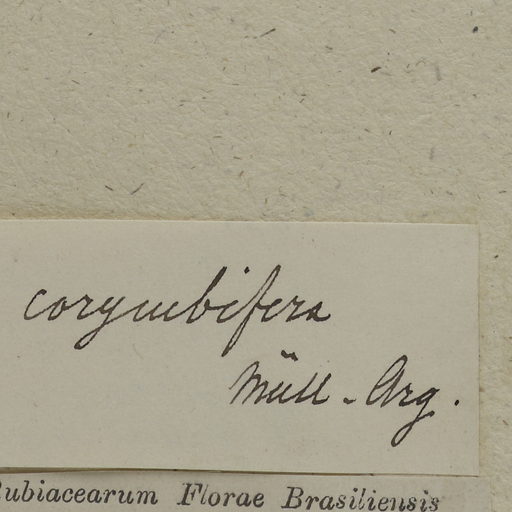 corymbifera
Müll-Arg.
Rubiacearum Florae Brasiliensis